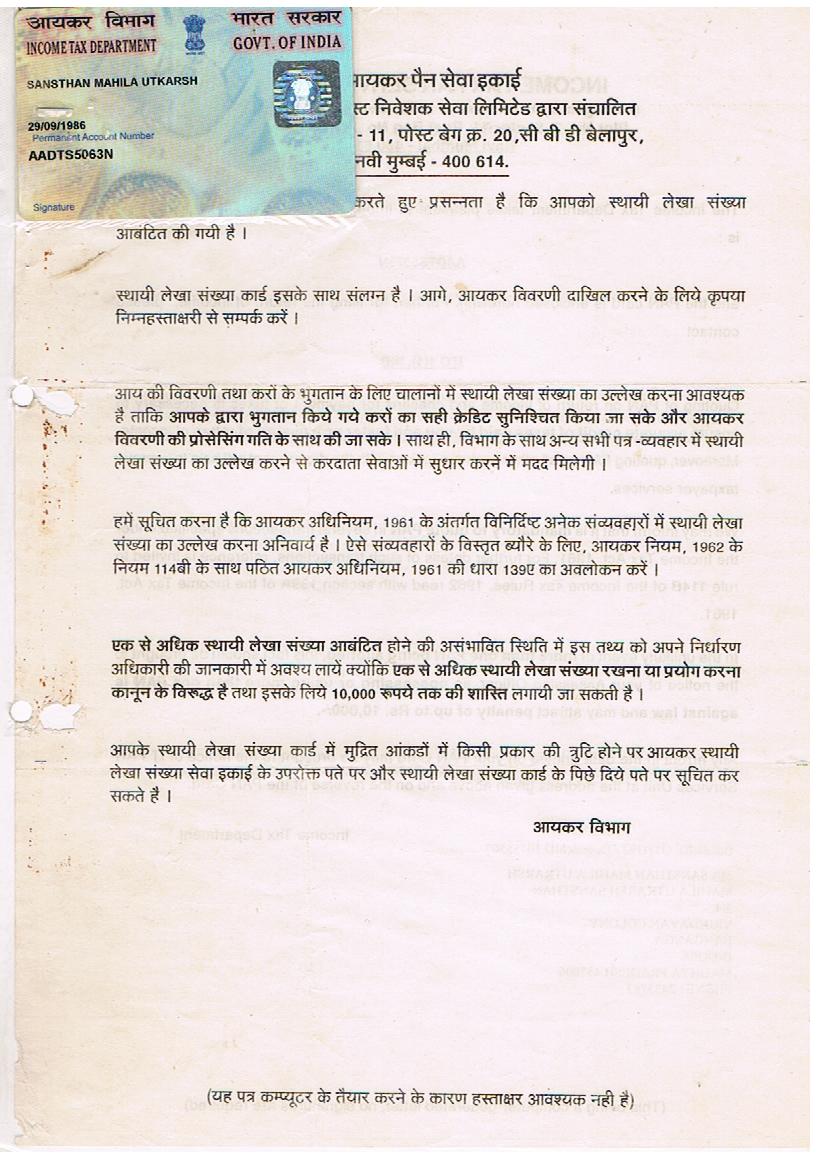 आयकर विभाग भारत सरकार
INCOME TAX DEPARTMENT GOVT. OF INDIA
SANSTHAN MAHILA UTKARSH
29/09/1986
Permanent Account Number
AADTS5063N
Signature
आयकर पैन सेवा इकाई
निवेशक सेवा लिमिटेड द्वारा संचालित
- 11, पोस्ट बेग क्र. 20,सी बी डी बेलापुर,
नवी मुम्बई - 400 614.
करते हुए प्रसन्नता है कि आपको स्थायी लेखा संख्या
आबंटित की गयी है ।
स्थायी लेखा संख्या कार्ड इसके साथ संलग्न है । आगे, आयकर विवरणी दाखिल करने के लिये कृपया
निम्नहस्ताक्षरी से सम्पर्क करें ।
आय की विवरणी तथा करों के भुगतान के लिए चालानों में स्थायी लेखा संख्या का उल्लेख करना आवश्यक
है ताकि आपके द्वारा भुगतान किये गये करों का सही क्रेडिट सुनिश्चित किया जा सके और आयकर
विवरणी की प्रोसेसिंग गति के साथ की जा सके । साथ ही, विभाग के साथ अन्य सभी पत्र -व्यवहार में स्थायी
लेखा संख्या का उल्लेख करने से करदाता सेवाओं में सुधार करनें में मदद मिलेगी ।
हमें सूचित करना है कि आयकर अधिनियम, 1961 के अंतर्गत विनिर्दिष्ट अनेक संव्यवहारों में स्थायी लेखा
संख्या का उल्लेख करना अनिवार्य है । ऐसे संव्यवहारों के विस्तृत ब्यौरे के लिए, आयकर नियम, 1962 के
नियम 114बी के साथ पठित आयकर अधिनियम, 1961 की धारा 139ए का अवलोकन करें ।
एक से अधिक स्थायी लेखा संख्या आबंटित होने की असंभावित स्थिति में इस तथ्य को अपने निर्धारण
अधिकारी की जानकारी में अवश्य लायें क्योंकि एक से अधिक स्थायी लेखा संख्या रखना या प्रयोग करना
कानून के विरूद्ध है तथा इसके लिये 10,000 रूपये तक की शास्ति लगायी जा सकती है ।
आपके स्थायी लेखा संख्या कार्ड में मुद्रित आंकडों में किसी प्रकार की त्रुटि होने पर आयकर स्थायी
लेखा संख्या सेवा इकाई के उपरोक्त पते पर और स्थायी लेखा संख्या कार्ड के पिछे दिये पते पर सूचित कर
सकते है ।
आयकर विभाग
(यह पत्र कम्प्यूटर के तैयार करने के कारण हस्ताक्षर आवश्यक नही है)